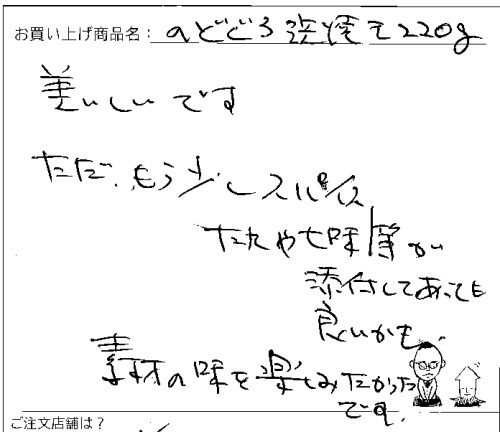 お買い上げ商品名：のどぐろ炙焼き220g
美いしいです
ただ、もう少しスパイス
たれや七味等が
添付してあっても
良いかも。
素材の味を楽しみたかった
です。
ご注文店舗は？